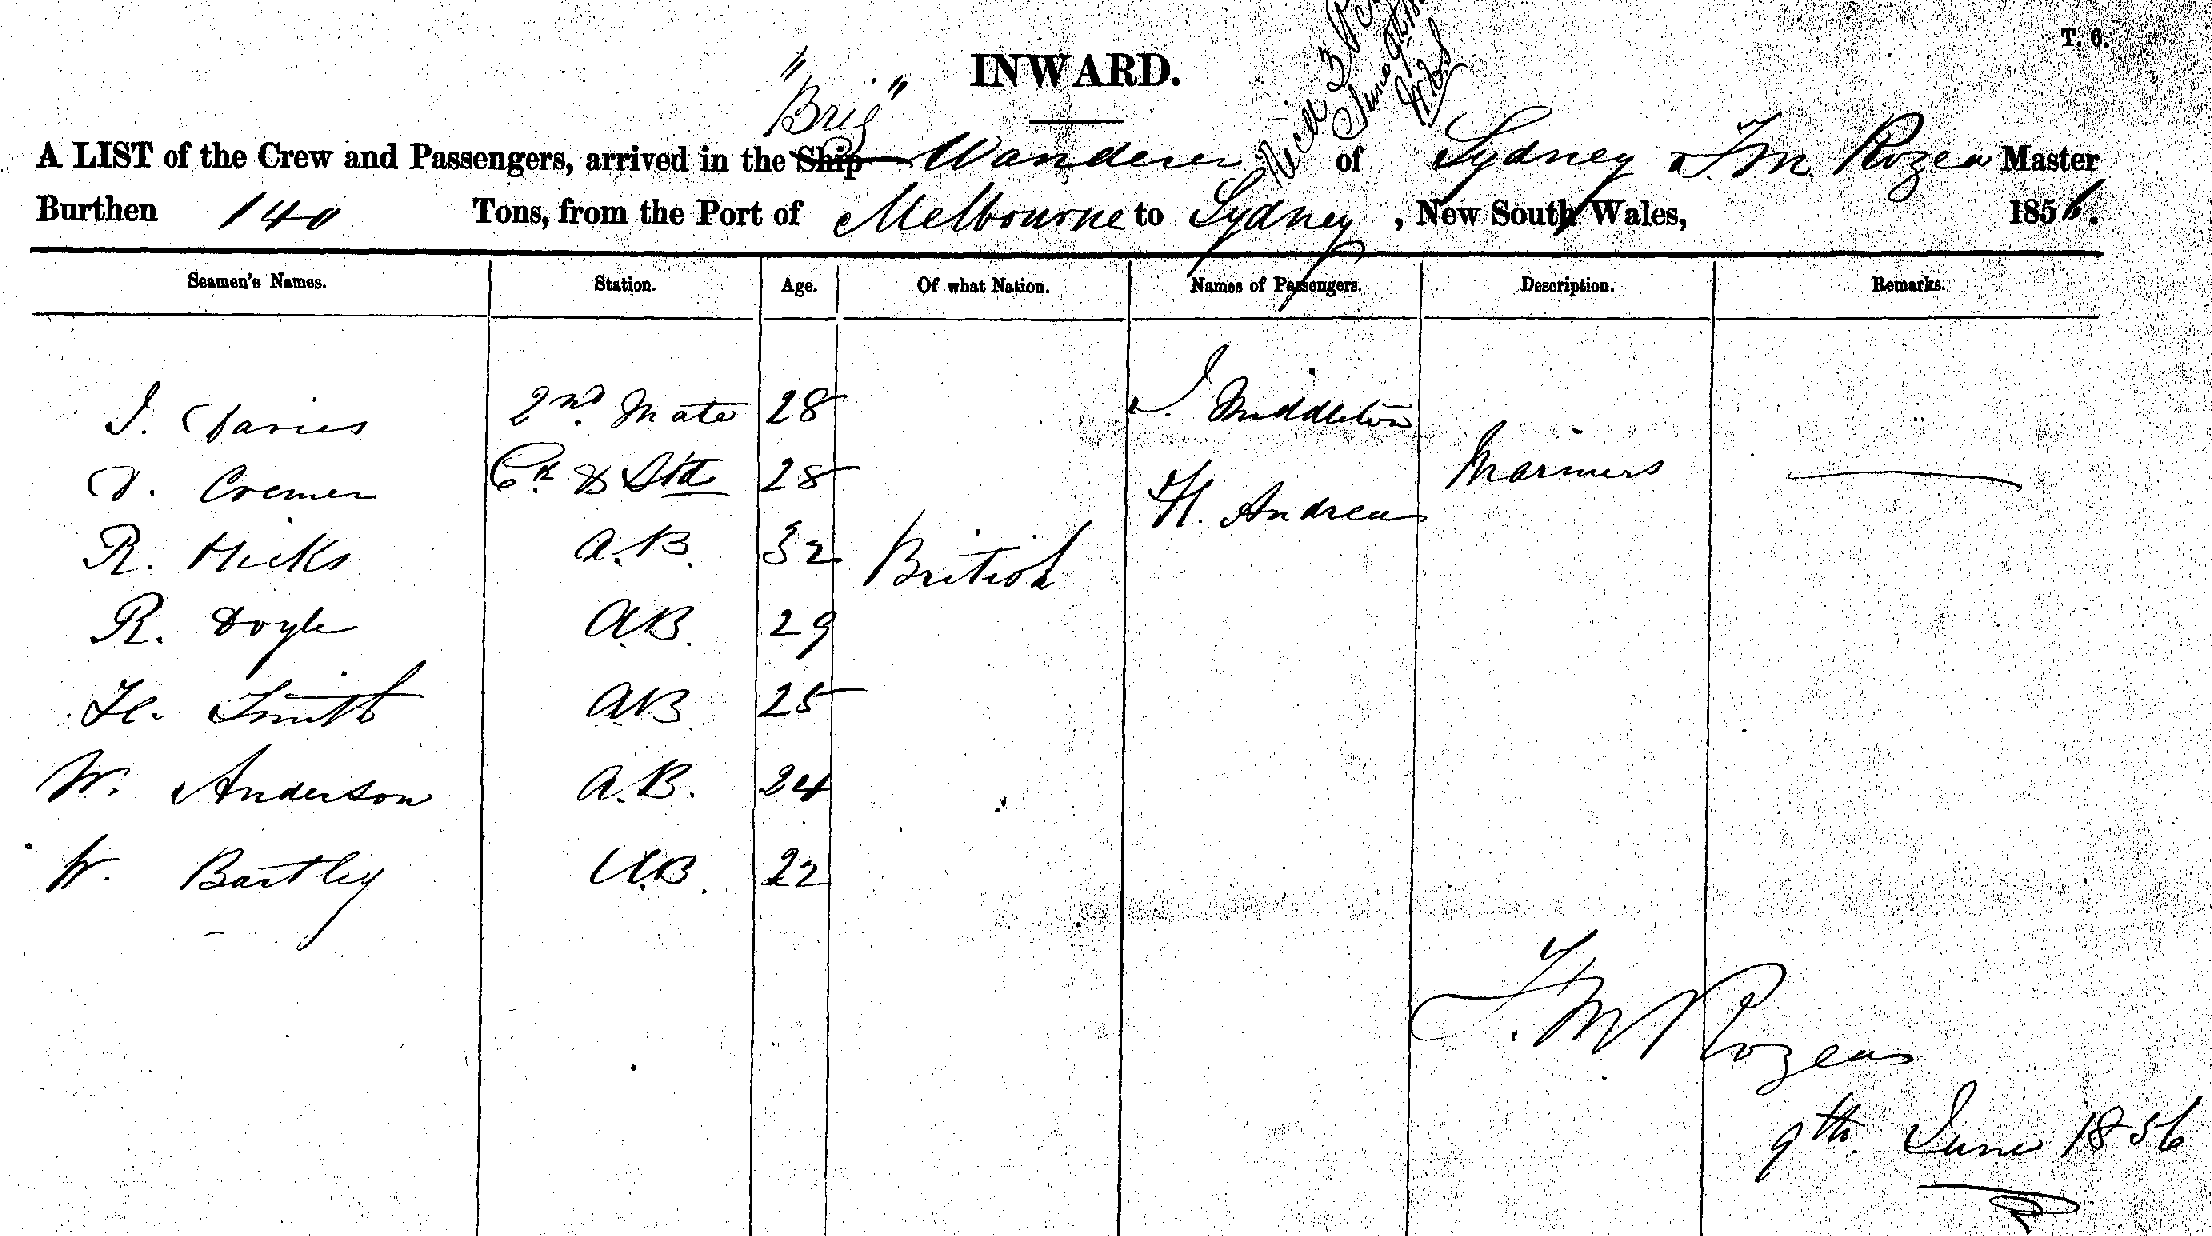 T. 6.
INWARD.
"Brig"
A LIST of the Crew and Passengers, arrived in the Ship Wanderer of Sydney T. M. Rozea Master
Burthen 140 Tons, from the Port of Melbourne to Sydney, New South Wales, 1856.
Seamen's Names. Station. Age. Of what Nation. Names of Passengers. Description. Remarks.
J. Davies 2nd. Mate 28 J. Middleton
Cremer Ck & Std 28 H. Andrew Mariners
R. Hicks A.B. 32 British
R. Doyle A.B. 29
H. Smith AB 25
W. Anderson A.B. 24
W. Bartley A.B. 22
T. M Rozea
9th. June 1856